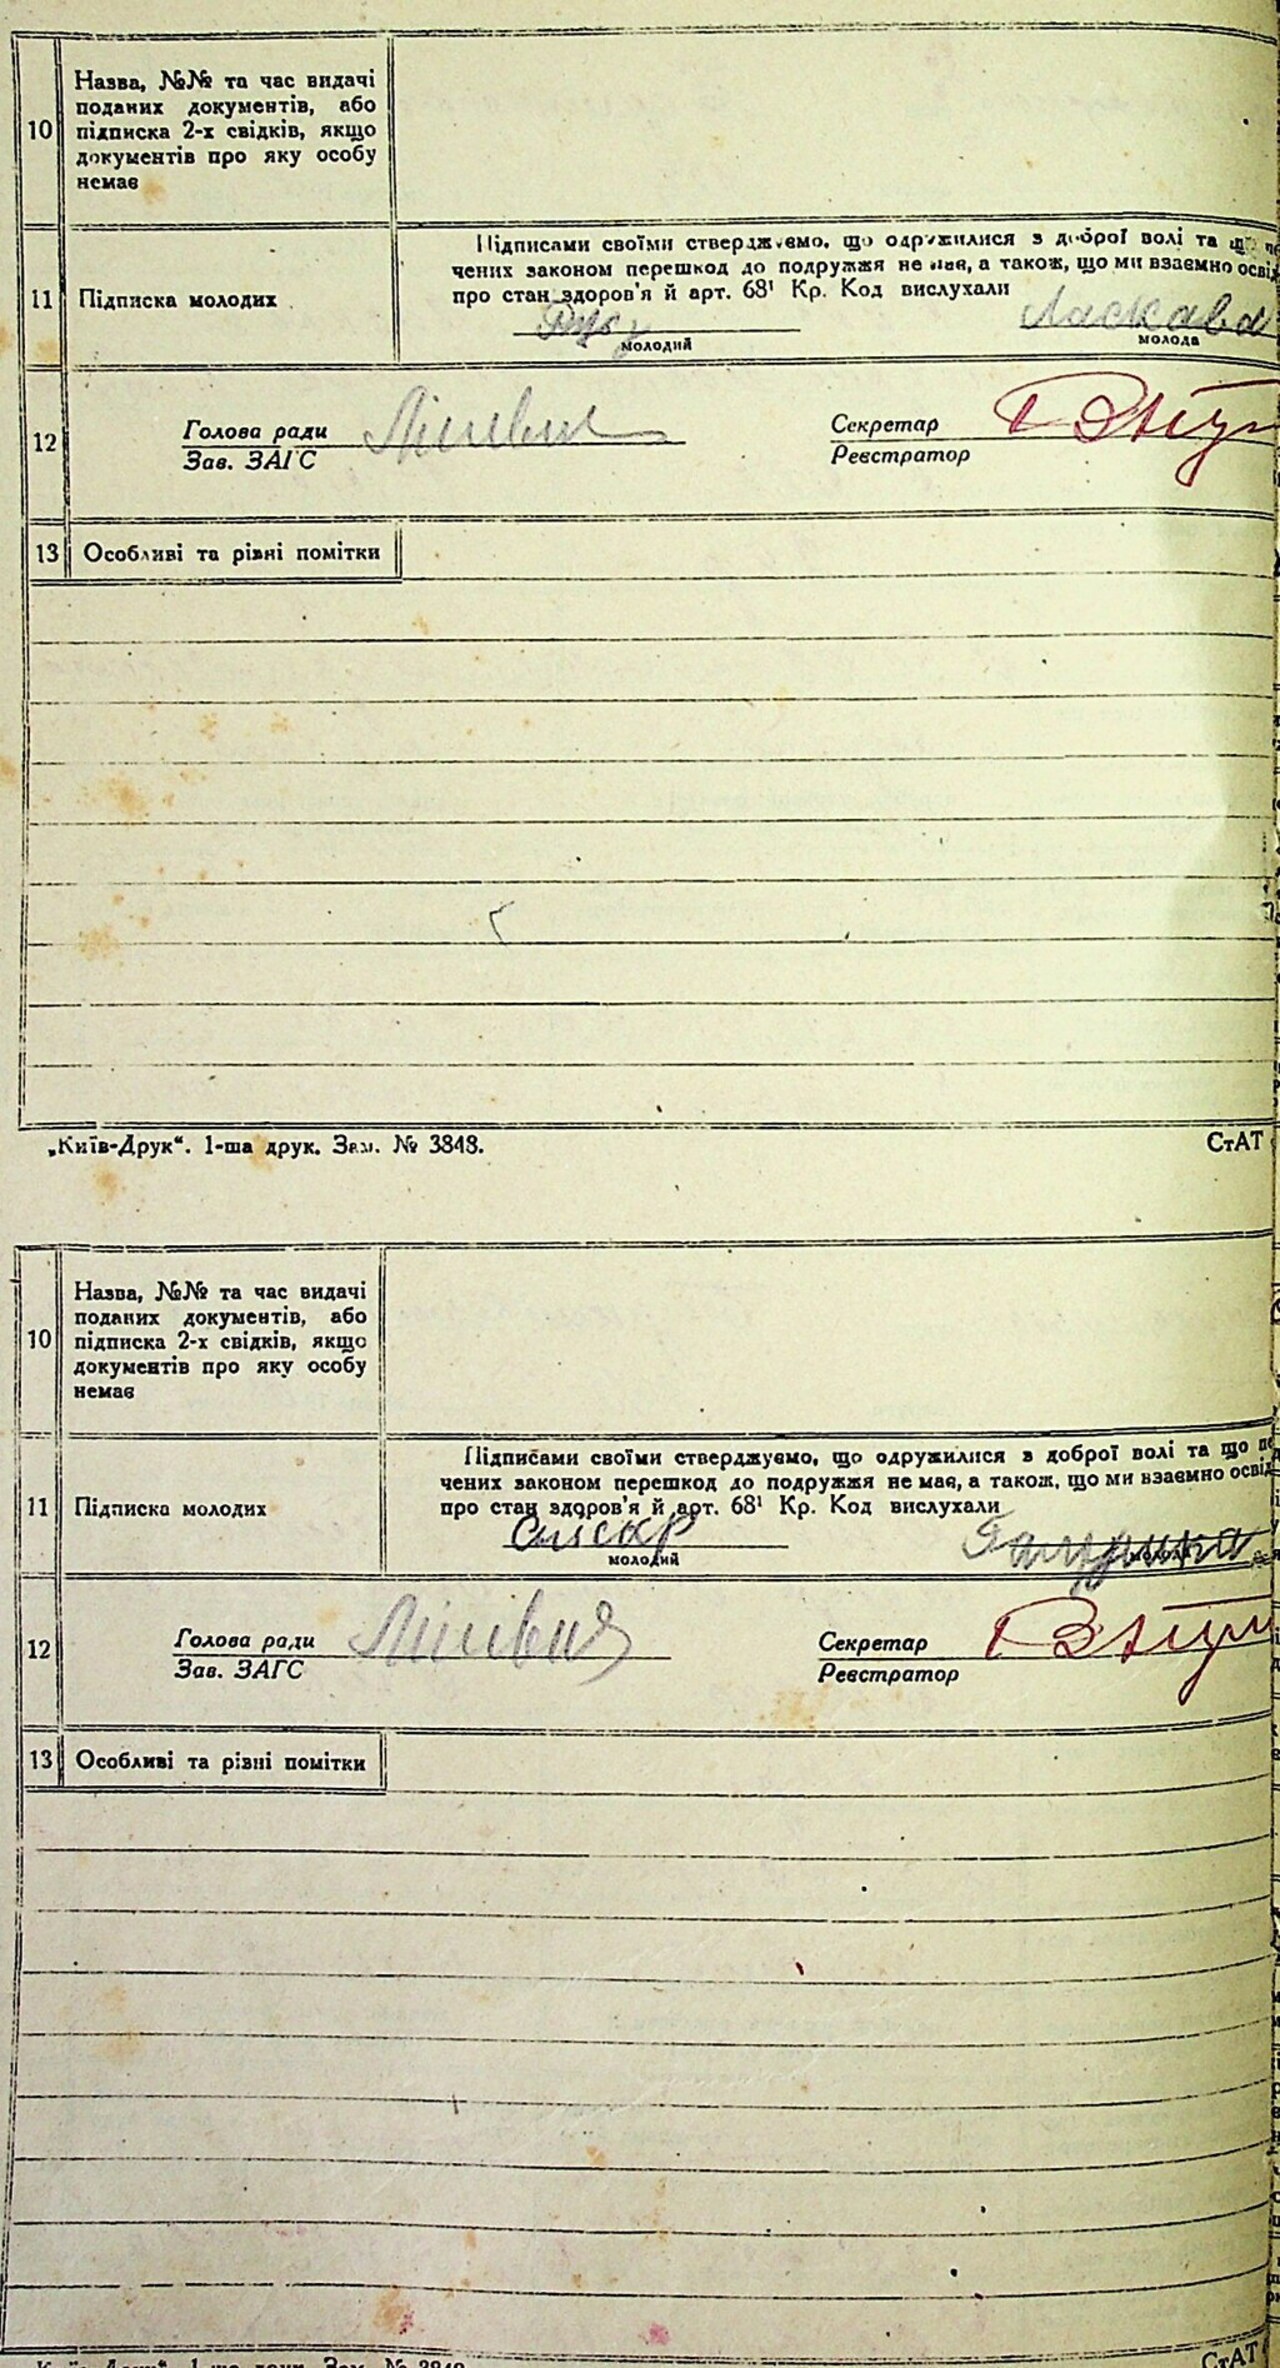 10
Назва, №№ та час видачі
поданих документів, або
підписка 2-х свідків, якщо
документів про яку особу
немає
11
Підписка молодих
Підписами своїми стверджуємо, що одружилися з доброї волі та що
чених законом перешкод до подружжя не має, а також, що ми взаємно освід
про стан здоров'я й арт. 68¹ Кр. Код вислухали
Ласкава
молодий
молода
12
Голова ради
Секретар
Зав. ЗАГС
Реєстратор
13
Особливі та різні помітки
„Київ-Друк“. 1-ша друк. Зам. № 3848.
СтАТ
10
Назва, №№ та час видачі
поданих документів, або
підписка 2-х свідків, якщо
документів про яку особу
немає
11
Підписка молодих
Підписами своїми стверджуємо, що одружилися з доброї волі та що
чених законом перешкод до подружжя не має, а також, що ми взаємно освід
про стан здоров'я й арт. 68¹ Кр. Код вислухали
молодий
12
Голова ради
Секретар
Зав. ЗАГС
Реєстратор
13
Особливі та різні помітки
„Київ-Друк“. 1-ша друк. Зам. № 3848.
СтАТ